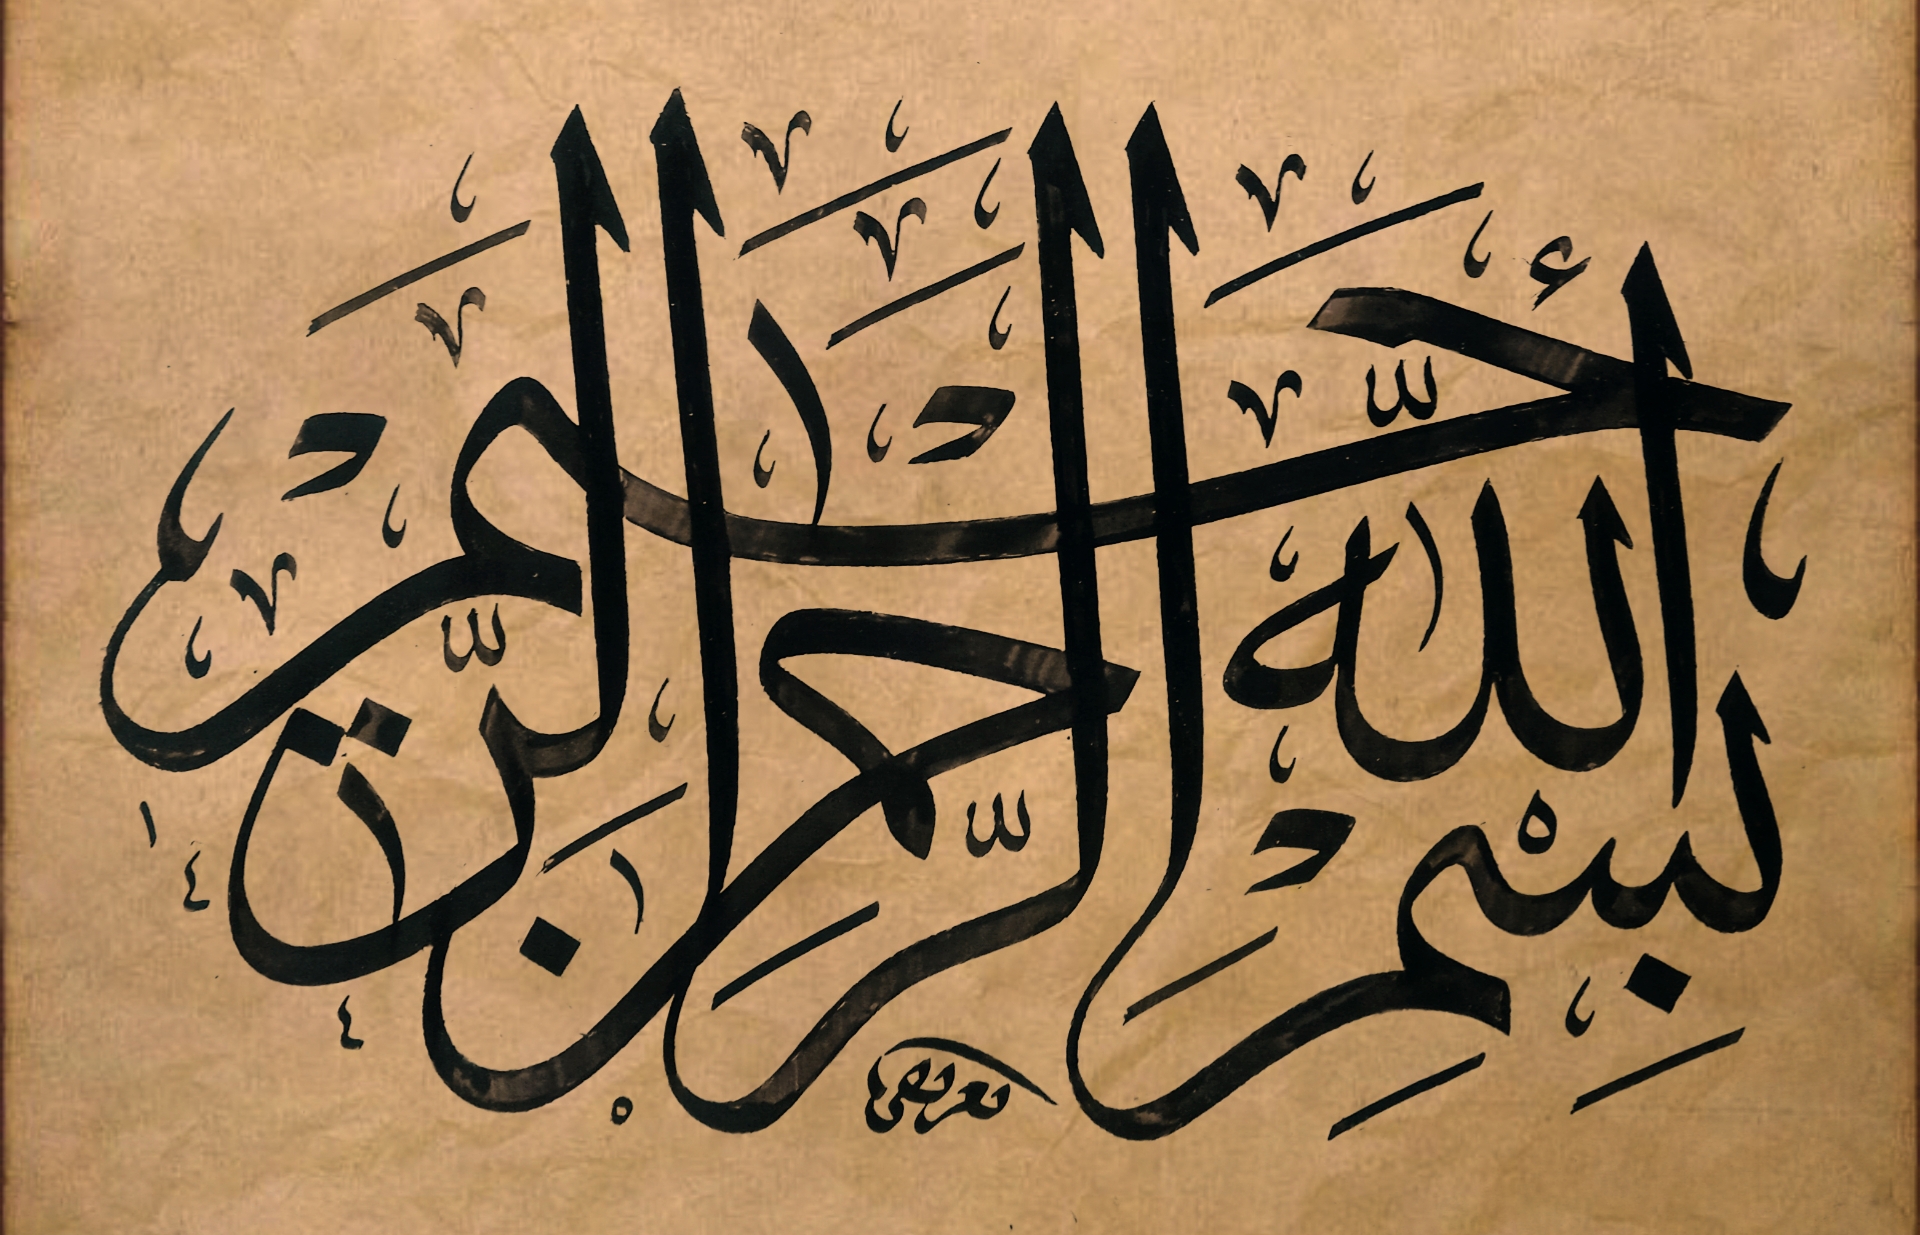 بِسْمِ اللهِ الرَّحْمٰنِ الرَّحِيمِ
١٤٤٥